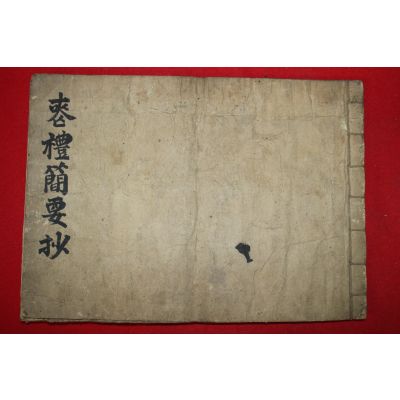 喪禮簡要抄